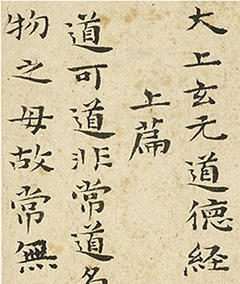 大上玄元道徳経
上篇
道可道非常道名
物之母故常無